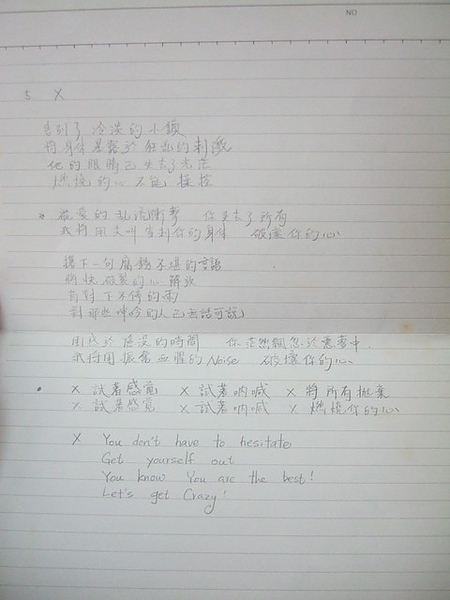 NO
5 X
告別了冷淡的小鎮
將身體暴露於狂亂的刺激
他的眼睛已失去了光芒
燃燒的心不能操控
被愛的乱流衝擊 你失去了所有
我將用尖叫刺你的身体 破壞你的心
撂下一句腐銹不堪的言語
將快破裂的心解放
面對下不停的雨
對那些呻吟的人已無話可說
用於淹沒的時間 你茫然於思考中
我將用振奮血腥的Noise 破壞你的心
X 試著感覺 X 試著吶喊 X 將所有拋棄
X 試著感覺 X 試著吶喊 X 燃燒你的心
X You don't have to hesitate
Get yourself out
You know You are the best!
Let's get Crazy!